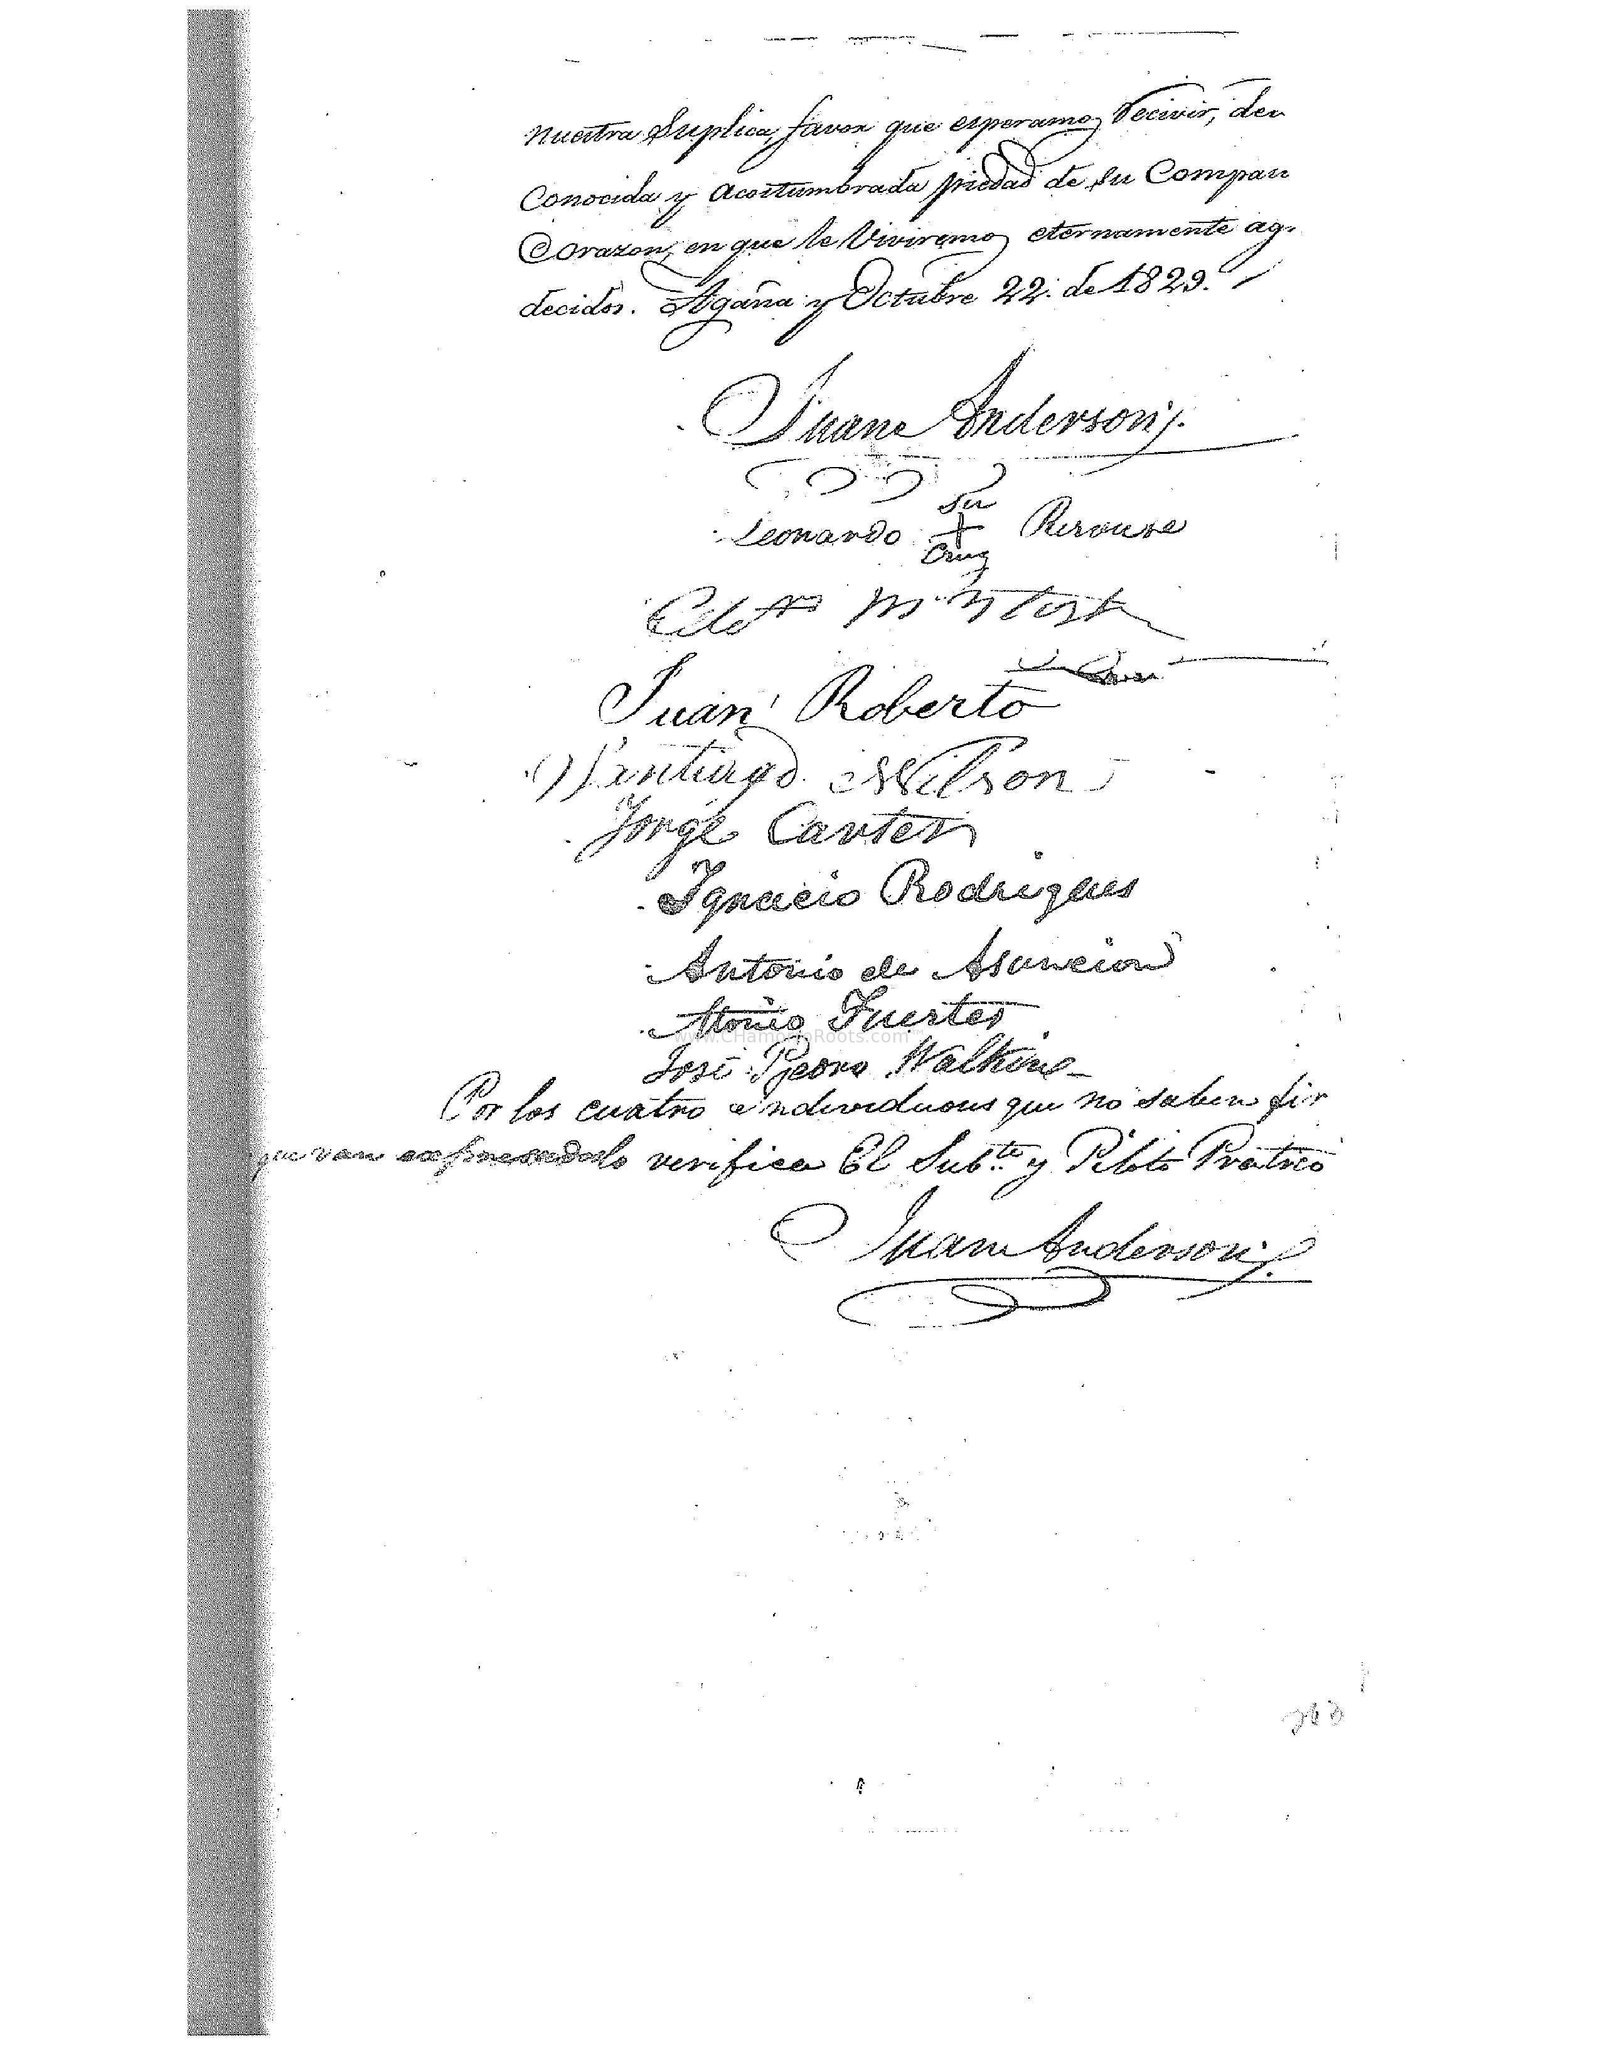 nuestra Suplica, favor que esperamos recivir, de
Conocida y acostumbrada piedad de su Compa
Corazon, en que le Viviremos eternamente ag
decidos. Agaña y Octubre 22. de 1829.
Juan Anderson
Su
Leonardo + 
Cruz
Juan Roberto
Santiago Wilson
Jorge Carter
Ignacio Rodrigues
Antonio de Asuncion
Fuertes
www.CHamoruRoots.com
José Pedro
Por los cuatro individuous que no saben fir
que van lo verifica El Subte y Piloto
Juan Anderson